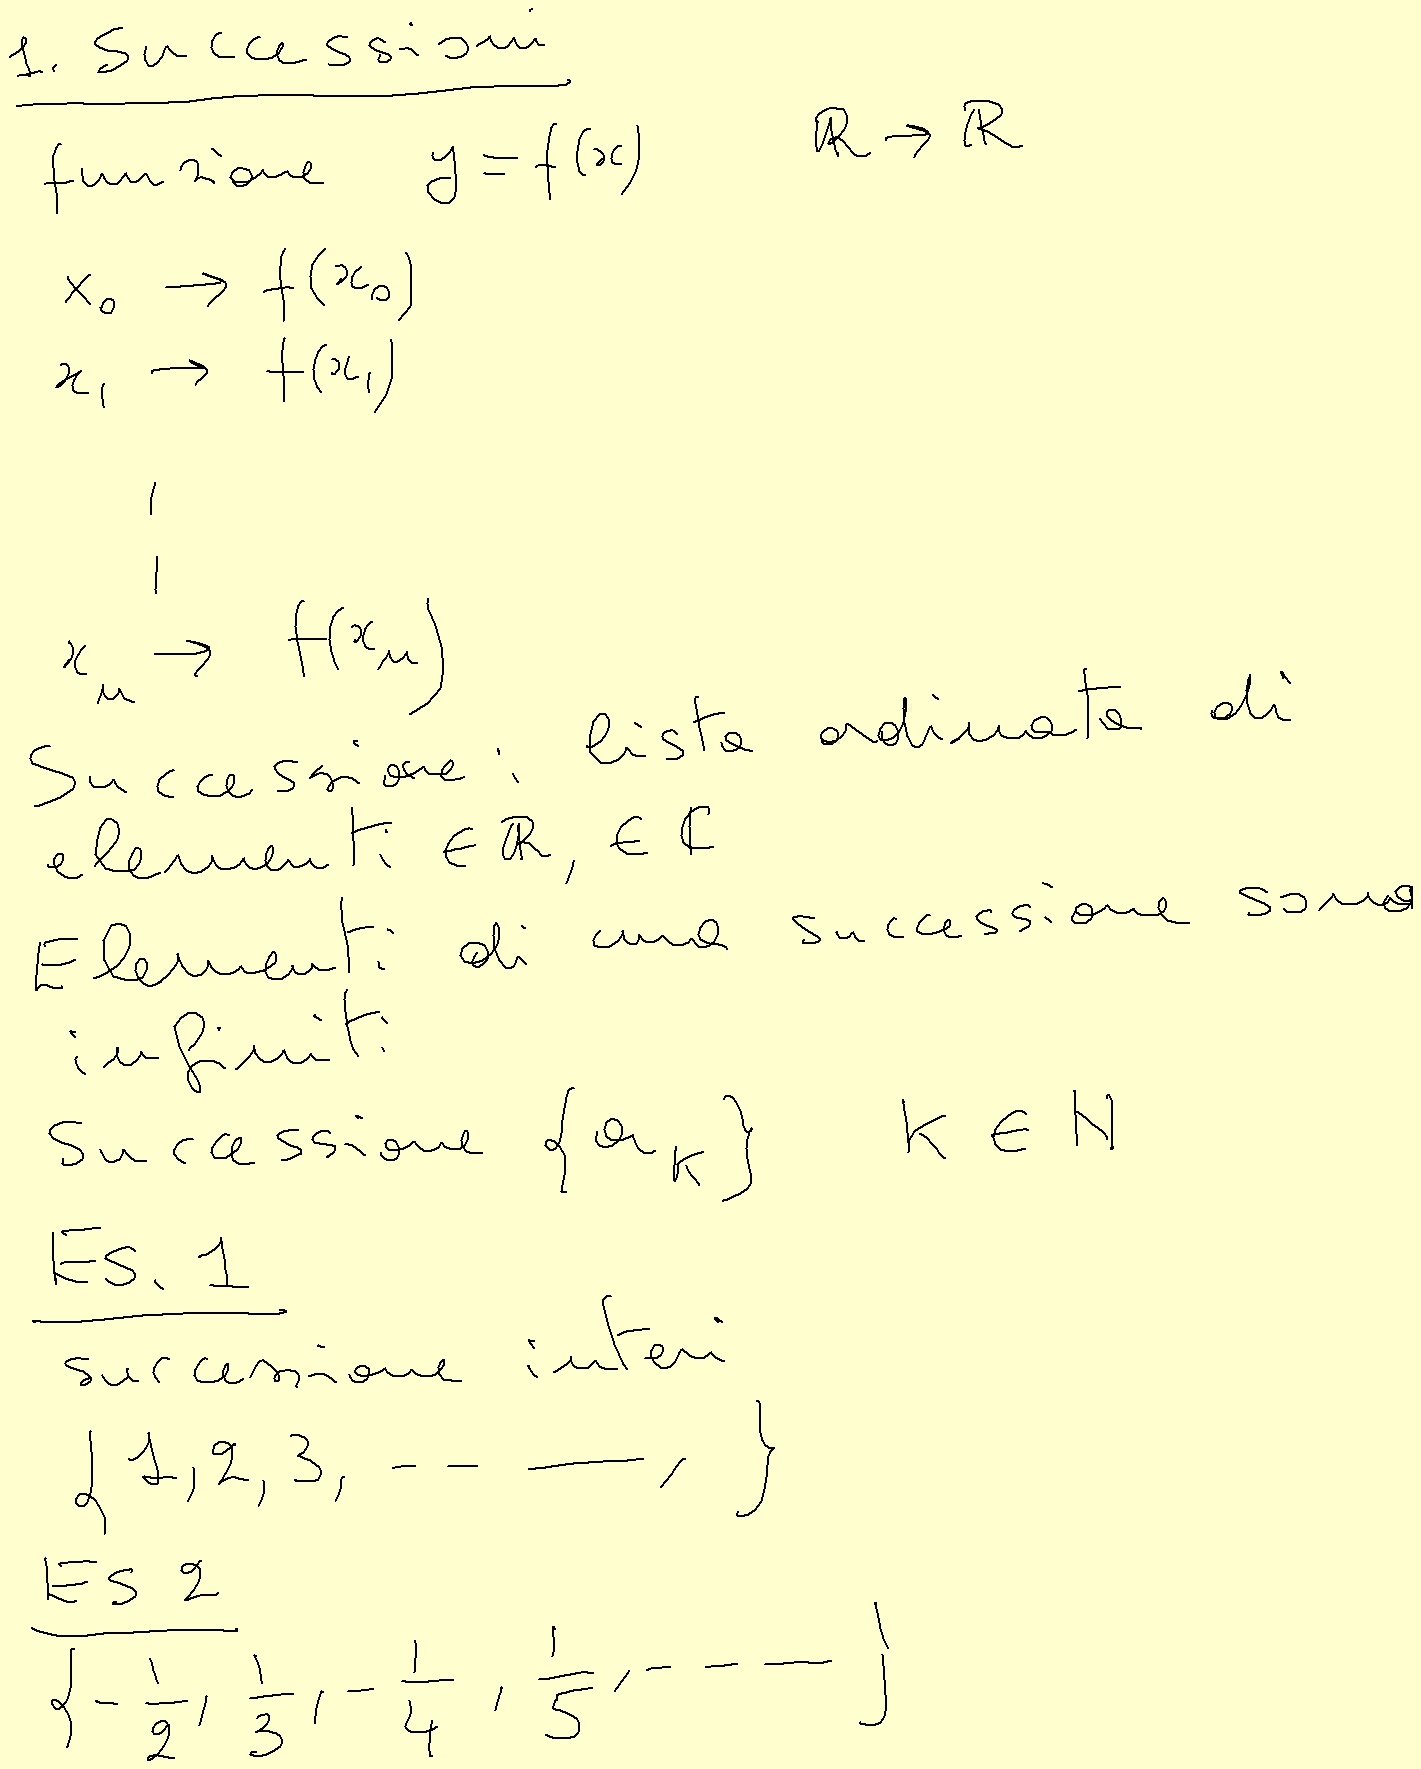 1. Successioni
funzione y = f(x) ℝ → ℝ
x₀ → f(x₀)
x₁ → f(x₁)
|
|
xₙ → f(xₙ)
Successione: lista ordinata di
elementi ∈ ℝ, ∈ ℂ
Elementi di una successione sono
infiniti
Successione {aₖ} K ∈ N
ES. 1
successione interi
{1, 2, 3, -- —, }
ES 2
{-1/2, 1/3, -1/4, 1/5, ----}